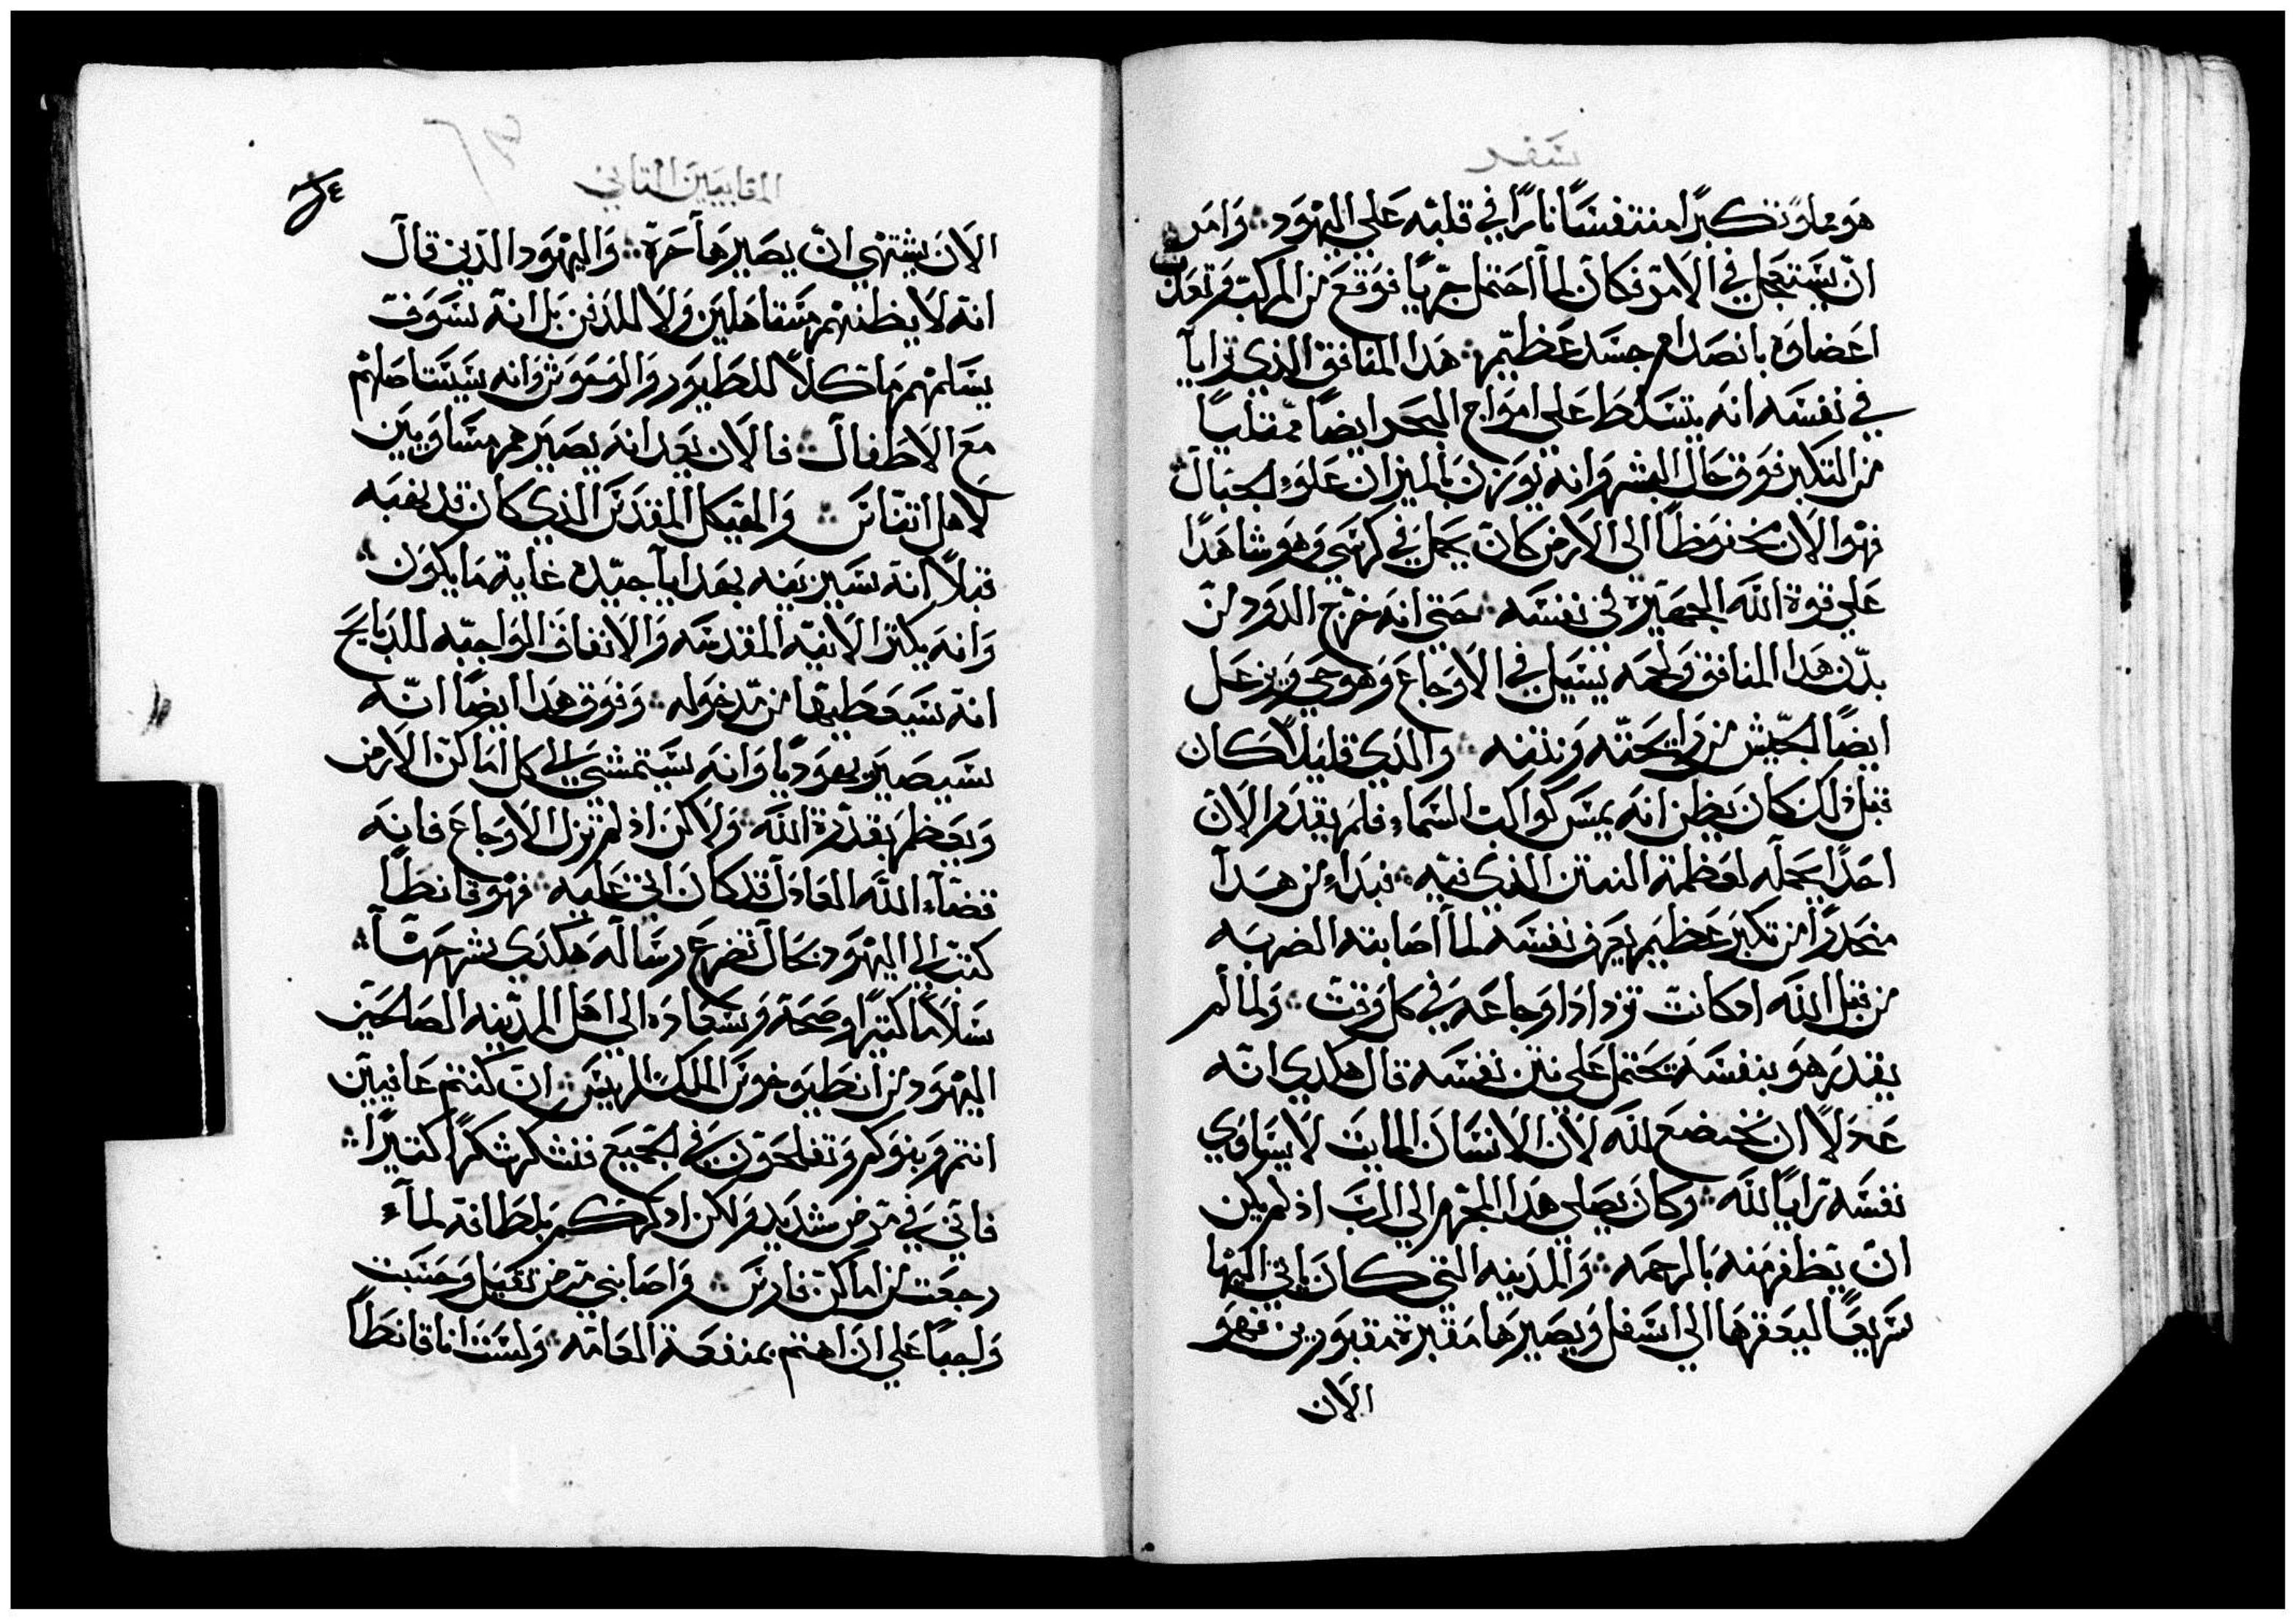 سفر
هو مملو تكبرًا متنفسًا نارًا في قلبه على اليهود وامر
ان يستعجل في الامر فكان لما احتمل جريًا فوقع من المركب وتعذبت
اعضاوه بانصدام جسد عظيم هدا المنافق الذي ترايا
في نفسه انه يتسلط على امواج البحر ايضًا ممتليًا
من التكبر فوق حال البشر وانه يوزن بالميزان علو الجبال
فهو الان مخفوظًا الى الارض كان يحمل في كرسي وهو شاهدًا
على قوة الله الجهيره في نفسه حتى انه خرج الدود من
بدن هدا المنافق ولحمه يسيل في الاوجاع وهو حي ويزعل
ايضًا الجيش من رايحته ونتنه والذي قليلًا كان
قبل ذلك كان يظن انه يمس كواكب السماء فلم يقدر الان
احدًا يحمله لعظمة النتن الذي فيه فبداء من هدا
منحدرًا من تكبر عظيم يعرف نفسه لما اصابته الضربه
من قبل الله اد كانت تزداد اوجاعه في كل وقت ولما لم
يقدر هو بنفسه تحتمل على نتن نفسه قال هكدي انه
عدلًا ان يخضع لله لان الانسان المايت لا يساوي
نفسه ترايًا لله وكان يصلي هدا المجرم الى الرب اذ لم يكن
ان يظفر منه بالرحمه والمدينه التي كان ياتي اليها
سريعًا ليعقرها الى اسفل ويصيرها مقبرة مقبورين فهو
الان
المقابيين التاني
الان يشتهي ان يصيرها حرة واليهود الذين قال
انه لا يظنهم متقاهلين ولا للدفن بل انه سوف
يسلمهم ماكلًا للطيور والوحوش وانه يستاصلهم
مع الاطفال فالان يعد انه يصيرهم مساويين
لاهل اتناس والهيكل المقدس الذي كان قد نهبه
قبلًا انه سيزينه بهدايا جيده غاية ما يكون
وانه يكثر الانيه المقدسه والانفاق الواجبه للدبايح
انه سيعطيها من مدخوله وفوق هدا ايضًا انه
سيصير يهوديًا وانه سيتمشي الى كل اماكن الارض
ويعظم بقدرة الله ولاكن اذ لم تزل الاوجاع فانه
قضاء الله العادل قد كان اتى عليه فهو قانطًا
كتب الى اليهود بحال تضرع رساله هكدي شرحها
سلامًا كتيرًا وصحة وسعاده الى اهل المدينه الصالحين
اليهود من انطيوخوس الملك الرييس ان كنتم عافيين
انتم وبنوكم وتفلحون في الجميع فنشكر شكرًا كتيرًا
فاني في مرض شديد ولاكن ادكركم بلطافة لما
رجعت من اماكن فارس واصابني مرض تقيل وحسبت
واجبًا علي ان اهتم بمنفعة العامه ولست انا قانطًا